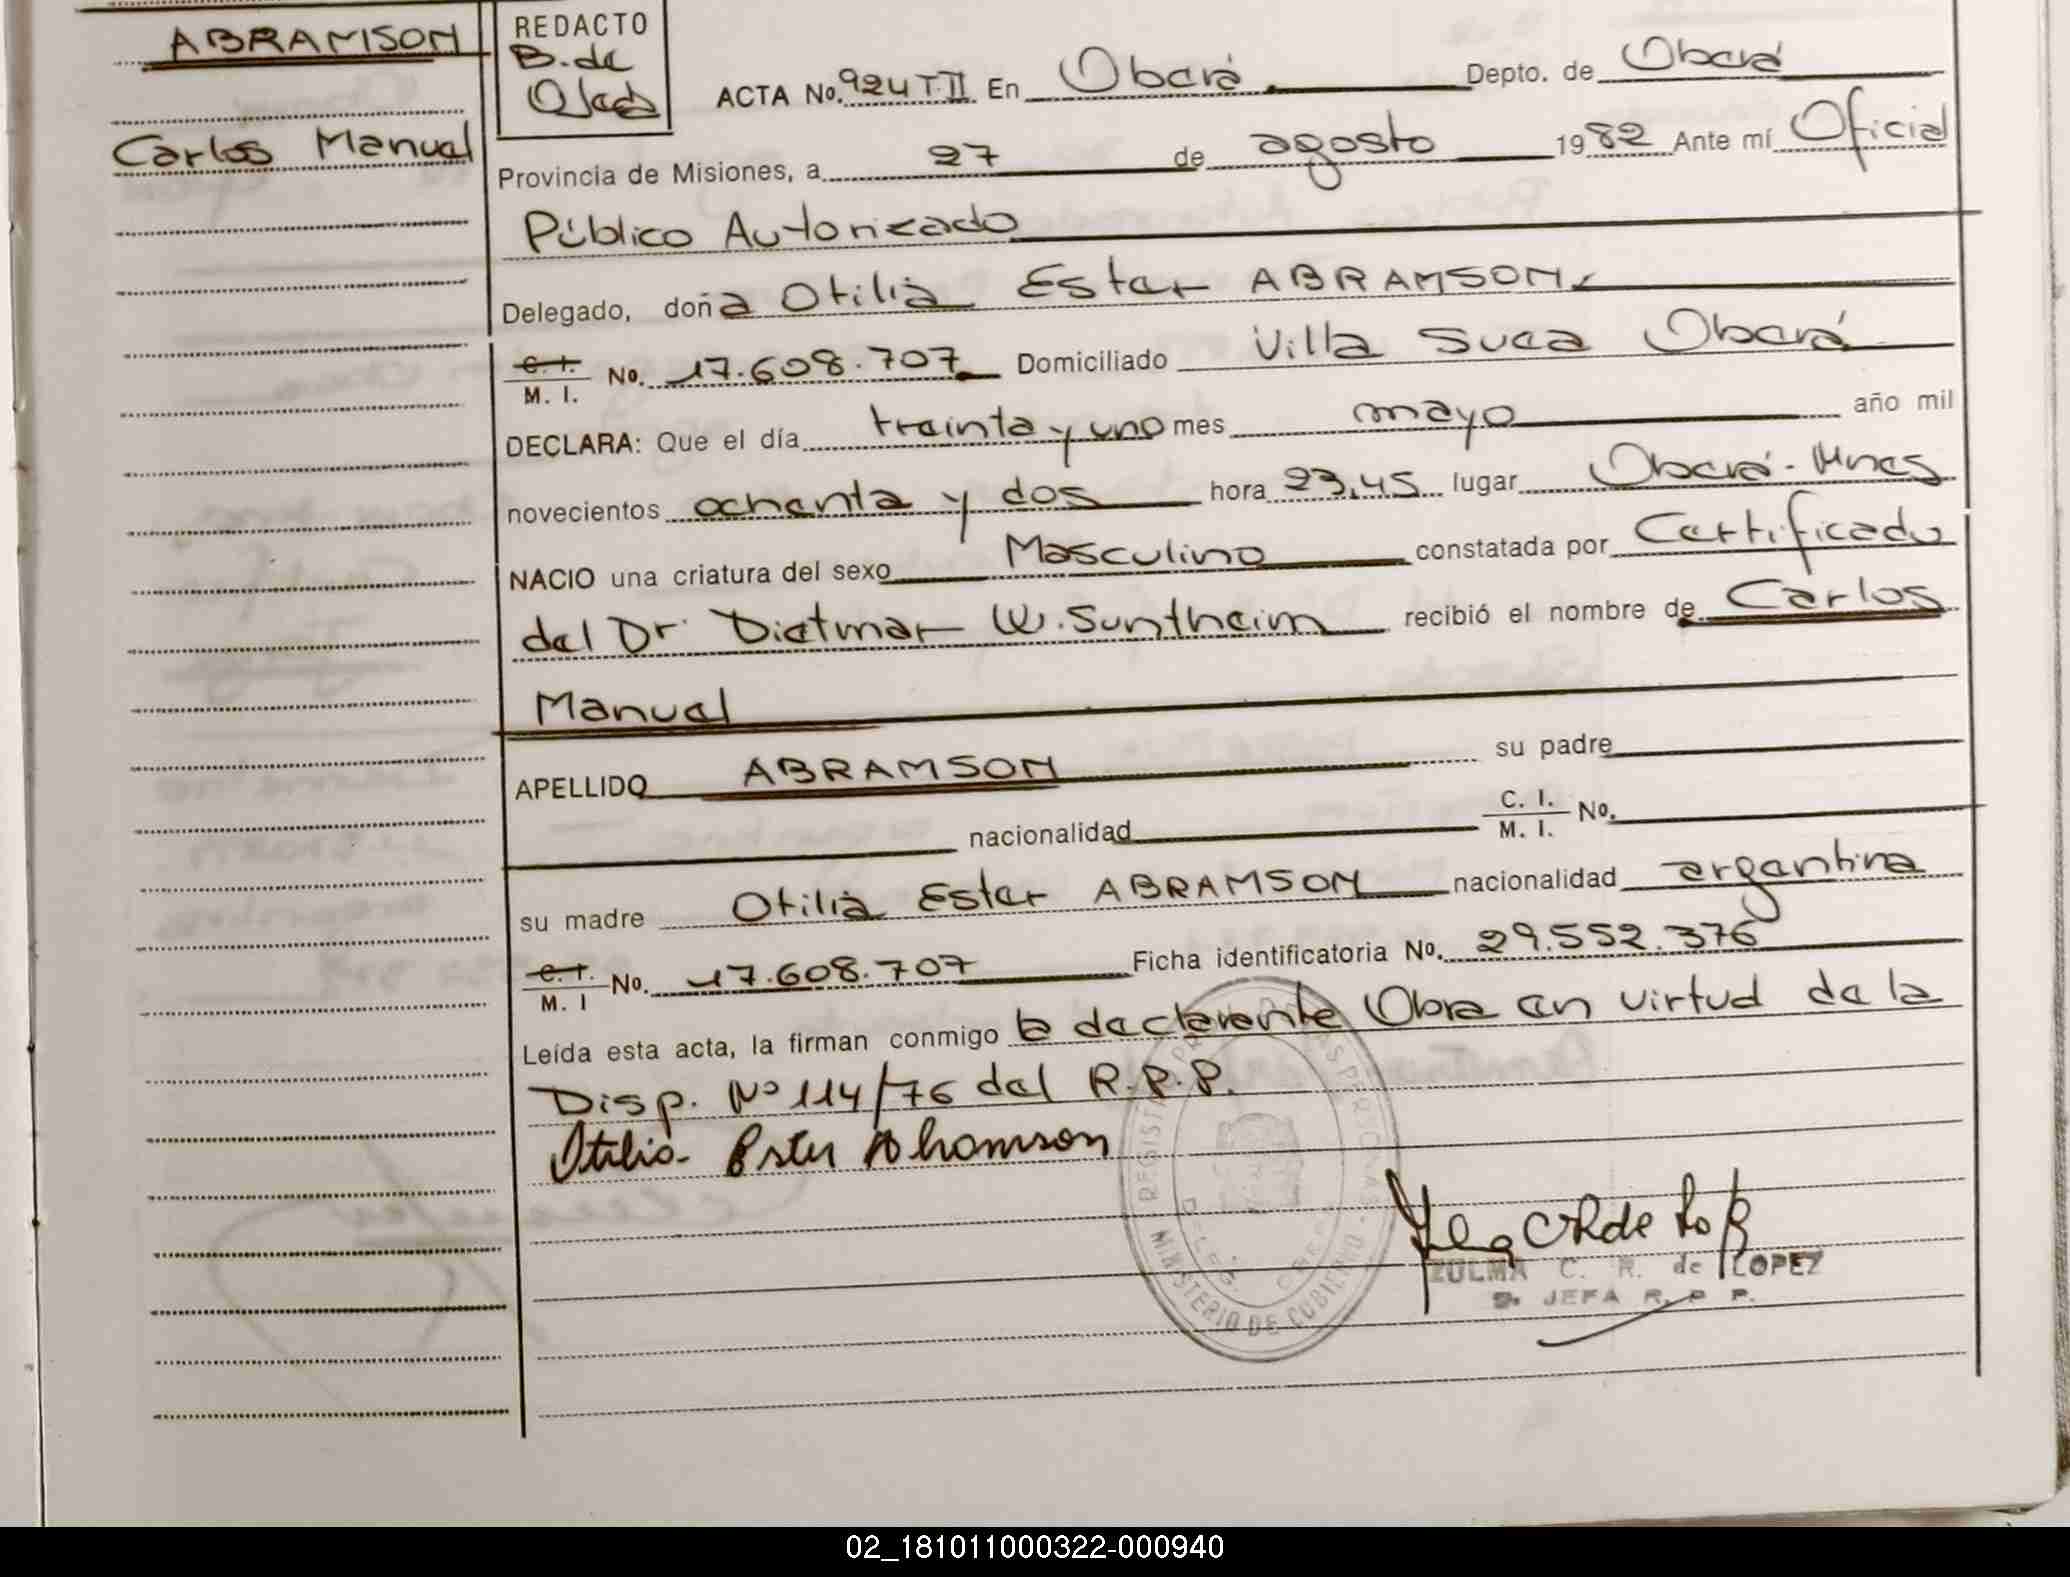 ABRAMSON
Carlos Manuel
REDACTO
B. de
ACTA No. 924 T.II En Oberá Depto. de Oberá
Provincia de Misiones, a 27 de agosto 1982 Ante mí Oficial
Público Autorizado
Delegado, doña Otilia Ester ABRAMSON
C. I. / M. I. No. 17.608.707 Domiciliado Villa Suea Oberá
DECLARA: Que el día treinta y uno mes mayo año mil
novecientos ochenta y dos hora 23,45 lugar Oberá - Mnes
NACIO una criatura del sexo Masculino constatada por Certificado
del Dr. Dietmar W. Suntheim recibió el nombre de Carlos
Manuel
APELLIDO ABRAMSON su padre
nacionalidad C. I. / M. I. No.
su madre Otilia Ester ABRAMSON nacionalidad argentina
C. I. / M. I No. 17.608.707 Ficha identificatoria No. 29.552.376
Leída esta acta, la firman conmigo la declarante Obra en virtud de la
Disp. Nº 114/76 del R.P.P.
Otilia Ester Abramson
MINISTERIO DE GOBIERNO
ZULMA C. R. de LOPEZ
JEFA R. P. P.
02_181011000322-000940